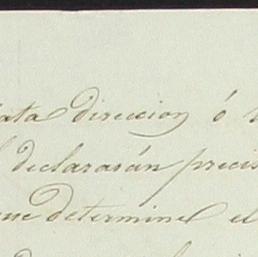 ata direccion ó
declararán precis
que determine el